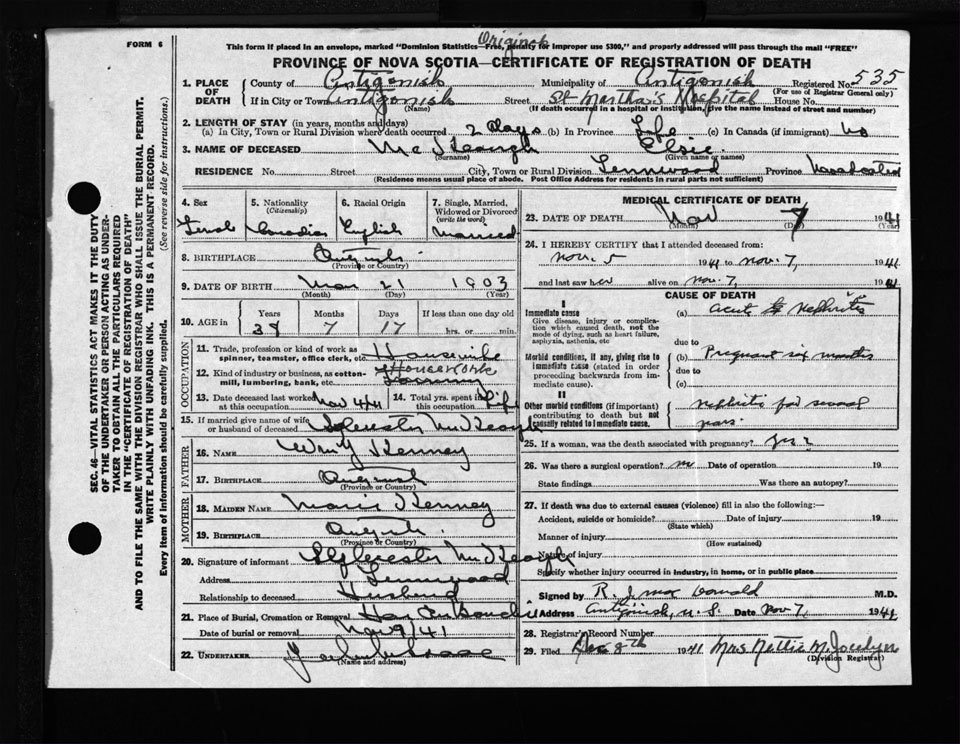 Original
FORM 6
This form if placed in an envelope, marked "Dominion Statistics—Free, penalty for improper use $300," and properly addressed will pass through the mail "FREE"
PROVINCE OF NOVA SCOTIA—CERTIFICATE OF REGISTRATION OF DEATH
1. PLACE OF DEATH County of Antigonish Municipality of Antigonish Registered No. 535
(For use of Registrar General only)
If in City or Town Antigonish Street St Martha's Hospital House No.
(If death occurred in a hospital or institution, give the name instead of street and number)
2. LENGTH OF STAY (in years, months and days)
(a) In City, Town or Rural Division where death occurred 2 days (b) In Province Life (c) In Canada (if immigrant) No
3. NAME OF DECEASED Mc Keough Elsie
(Surname) (Given name or names)
RESIDENCE No. Street City, Town or Rural Division Linwood Province Nova Scotia
(Residence means usual place of abode. Post Office Address for residents in rural parts not sufficient)
4. Sex Female
5. Nationality (Citizenship) Canadian
6. Racial Origin English
7. Single, Married, Widowed or Divorced (write the word) Married
8. BIRTHPLACE
(Province or Country)
9. DATE OF BIRTH Mar 21 1903
(Month) (Day) (Year)
10. AGE in Years 38 Months 7 Days 17 If less than one day old hrs. or min.
OCCUPATION
11. Trade, profession or kind of work as spinner, teamster, office clerk, etc. Housewife
12. Kind of industry or business, as cotton-mill, lumbering, bank, etc. Housework
13. Date deceased last worked at this occupation Nov 4/41
14. Total yrs. spent in this occupation Life
15. If married give name of wife or husband of deceased Sylvester McKeough
FATHER
16. NAME Wm Kenney
17. BIRTHPLACE
(Province or Country)
MOTHER
18. MAIDEN NAME Kenney
19. BIRTHPLACE
(Province or Country)
20. Signature of informant Sylvester McKeough
Address Linwood
Relationship to deceased Husband
21. Place of Burial, Cremation or Removal Har Au Bouche
Date of burial or removal Nov 9/41
22. UNDERTAKER
(Name and address)
MEDICAL CERTIFICATE OF DEATH
23. DATE OF DEATH Nov 7 1941
(Month) (Day) (Year)
24. I HEREBY CERTIFY that I attended deceased from:
Nov. 5 1941 to Nov. 7, 1941
and last saw her alive on Nov. 7, 1941
CAUSE OF DEATH
I
Immediate cause
Give disease, injury or complication which caused death, not the mode of dying, such as heart failure, asphyxia, asthenia, etc
(a) acute Nephritis
due to
Morbid conditions, if any, giving rise to immediate cause (stated in order proceeding backwards from immediate cause).
(b) Pregnant six months
due to
(c)
II
Other morbid conditions (if important) contributing to death but not causally related to immediate cause.
nephritis for several years.
25. If a woman, was the death associated with pregnancy? yes
26. Was there a surgical operation? no Date of operation 19
State findings Was there an autopsy?
27. If death was due to external causes (violence) fill in also the following:—
Accident, suicide or homicide? Date of injury 19
(State which)
Manner of injury
(How sustained)
Nature of injury
Specify whether injury occurred in industry, in home, or in public place
Signed by R. J. MacDonald M.D.
Address Antigonish, N. S. Date Nov 7, 1941
28. Registrar's Record Number
29. Filed Dec 8th 1941 Mrs Nettie M. Jocelyn
(Division Registrar)
SEC. 46—VITAL STATISTICS ACT MAKES IT THE DUTY
OF THE UNDERTAKER OR PERSON ACTING AS UNDERTAKER TO OBTAIN ALL THE PARTICULARS REQUIRED
IN THE "CERTIFICATE OF REGISTRATION OF DEATH"
AND TO FILE THE SAME WITH THE DIVISION REGISTRAR WHO SHALL ISSUE THE BURIAL PERMIT.
WRITE PLAINLY WITH UNFADING INK. THIS IS A PERMANENT RECORD.
Every item of information should be carefully supplied. (See reverse side for instructions.)